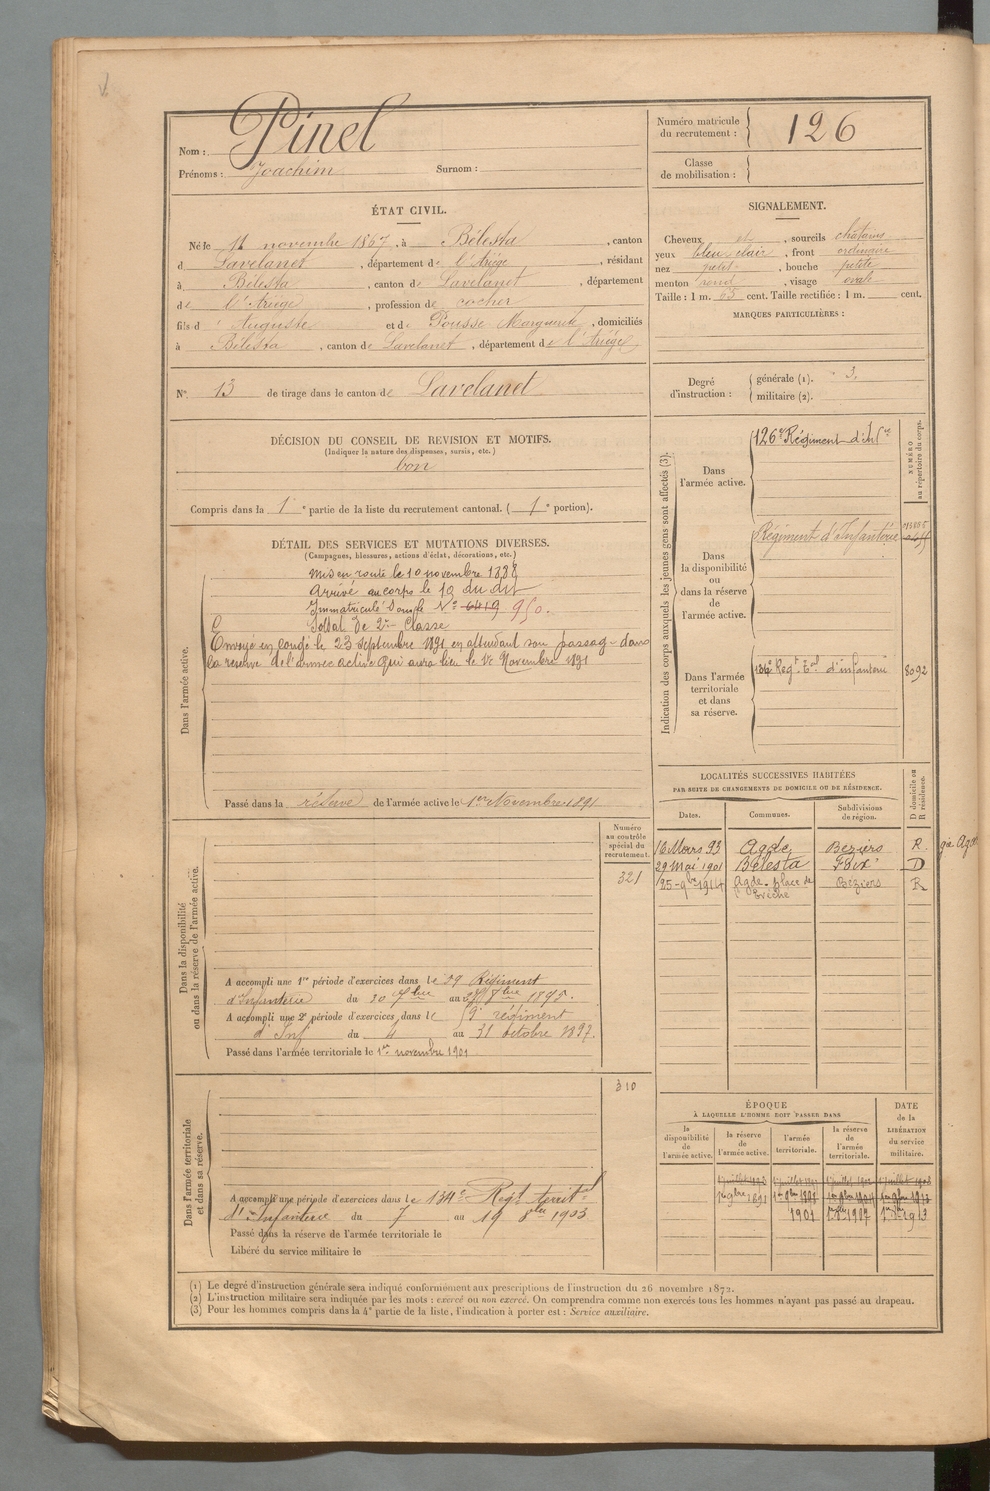 Nom : Pinel
Prénoms : Joachim Surnom :
Numéro matricule du recrutement : 126
Classe de mobilisation :
ÉTAT CIVIL.
Né le 11 novembre 1867, à Bélesta, canton
d Lavelanet, département de l'Ariège, résidant
à Bélesta, canton de Lavelanet, département
de l'Ariège, profession de cocher
fils d' Auguste et de Pousse Marguerite, domiciliés
à Bélesta, canton de Lavelanet, département de l'Ariège
SIGNALEMENT.
Cheveux et, sourcils châtains
yeux bleu clair, front ordinaire
nez petit, bouche petite
menton rond, visage ovale
Taille : 1 m. 65 cent. Taille rectifiée : 1 m. cent.
MARQUES PARTICULIÈRES :
N° 13 de tirage dans le canton de Lavelanet
Degré d'instruction : générale (1). 3.
militaire (2).
DÉCISION DU CONSEIL DE REVISION ET MOTIFS.
(Indiquer la nature des dispenses, sursis, etc.)
bon
Compris dans la 1e partie de la liste du recrutement cantonal. (1e portion).
DÉTAIL DES SERVICES ET MUTATIONS DIVERSES.
(Campagnes, blessures, actions d'éclat, décorations, etc.)
Dans l'armée active.
Mis en route le 10 novembre 1888
Arrivé au corps le 10 du dit
Immatriculé sous le N° 6419 950.
Soldat de 2e Classe
Envoyé en congé le 23 Septembre 1891 en attendant son passage dans
la réserve de l'armée active qui aura lieu le 1er Novembre 1891
Passé dans la réserve de l'armée active le 1er Novembre 1891
Indication des corps auxquels les jeunes gens sont affectés (3).
NUMÉRO au répertoire du corps.
Dans l'armée active.
126e Régiment d'Infie
Dans la disponibilité ou dans la réserve de l'armée active.
Régiment d'Infanterie
Dans l'armée territoriale et dans sa réserve.
134e Regt Tal d'infanterie 8092
LOCALITÉS SUCCESSIVES HABITÉES
PAR SUITE DE CHANGEMENTS DE DOMICILE OU DE RÉSIDENCE.
D domicile ou R résidence.
Dates. Communes. Subdivisions de région.
16 Mars 93 Agde Béziers R.
29 Mai 1901 Bélesta Foix D
25-9bre 1914 Agde - place de Béziers R
Numéro au contrôle spécial du recrutement.
321
Dans la disponibilité ou dans la réserve de l'armée active.
A accompli une 1re période d'exercices dans le 59 Régiment
d'Infanterie du 30 7bre au 27 8bre 1895.
A accompli une 2e période d'exercices dans le 59e régiment
d'Inf du 4 au 31 octobre 1897.
Passé dans l'armée territoriale le 1er novembre 1901
310
Dans l'armée territoriale et dans sa réserve.
A accompli une période d'exercices dans le 134e Regt territl
d'Infanterie du 7 au 19 8bre 1903
Passé dans la réserve de l'armée territoriale le
Libéré du service militaire le
ÉPOQUE
À LAQUELLE L'HOMME DOIT PASSER DANS
la disponibilité de l'armée active.
la réserve de l'armée active.
l'armée territoriale.
la réserve de l'armée territoriale.
DATE de la LIBÉRATION du service militaire.
1er 9bre 1891
1901
(1) Le degré d'instruction générale sera indiqué conformément aux prescriptions de l'instruction du 26 novembre 1872.
(2) L'instruction militaire sera indiquée par les mots : exercé ou non exercé. On comprendra comme non exercés tous les hommes n'ayant pas passé au drapeau.
(3) Pour les hommes compris dans la 4e partie de la liste, l'indication à porter est : Service auxiliaire.